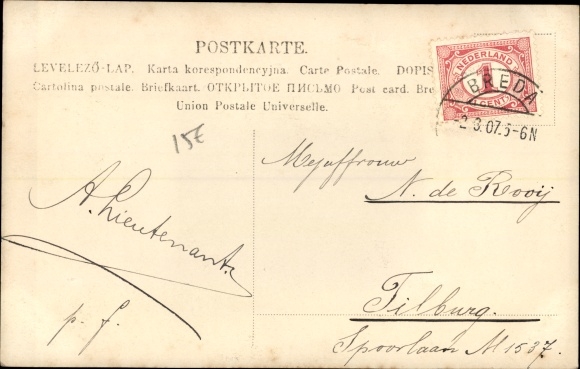 POSTKARTE.
LEVELEZŐ-LAP. Karta korespondencyjna. Carte Postale. DOPIS
Cartolina postale. Briefkaart. ОТКРЫТОЕ ПИСЬМО Post card. Bre
Union Postale Universelle.
NEDERLAND
1
CENT
BREDA
2 3.07.5-6N
15€
Mejuffrouw
N. de Rooij
Tilburg.
Spoorlaan M 1537.
A. Lieutenant.
p. f.